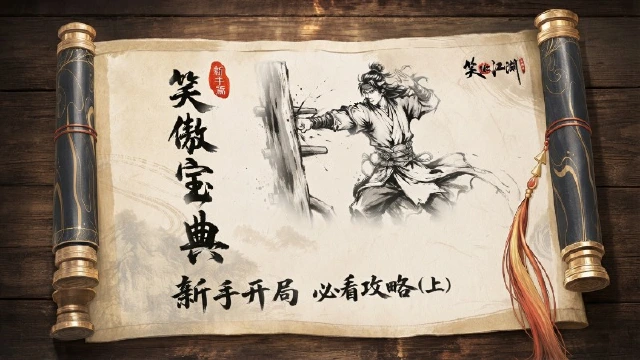 笑傲宝典
新手篇
新手开局 必看攻略(上)